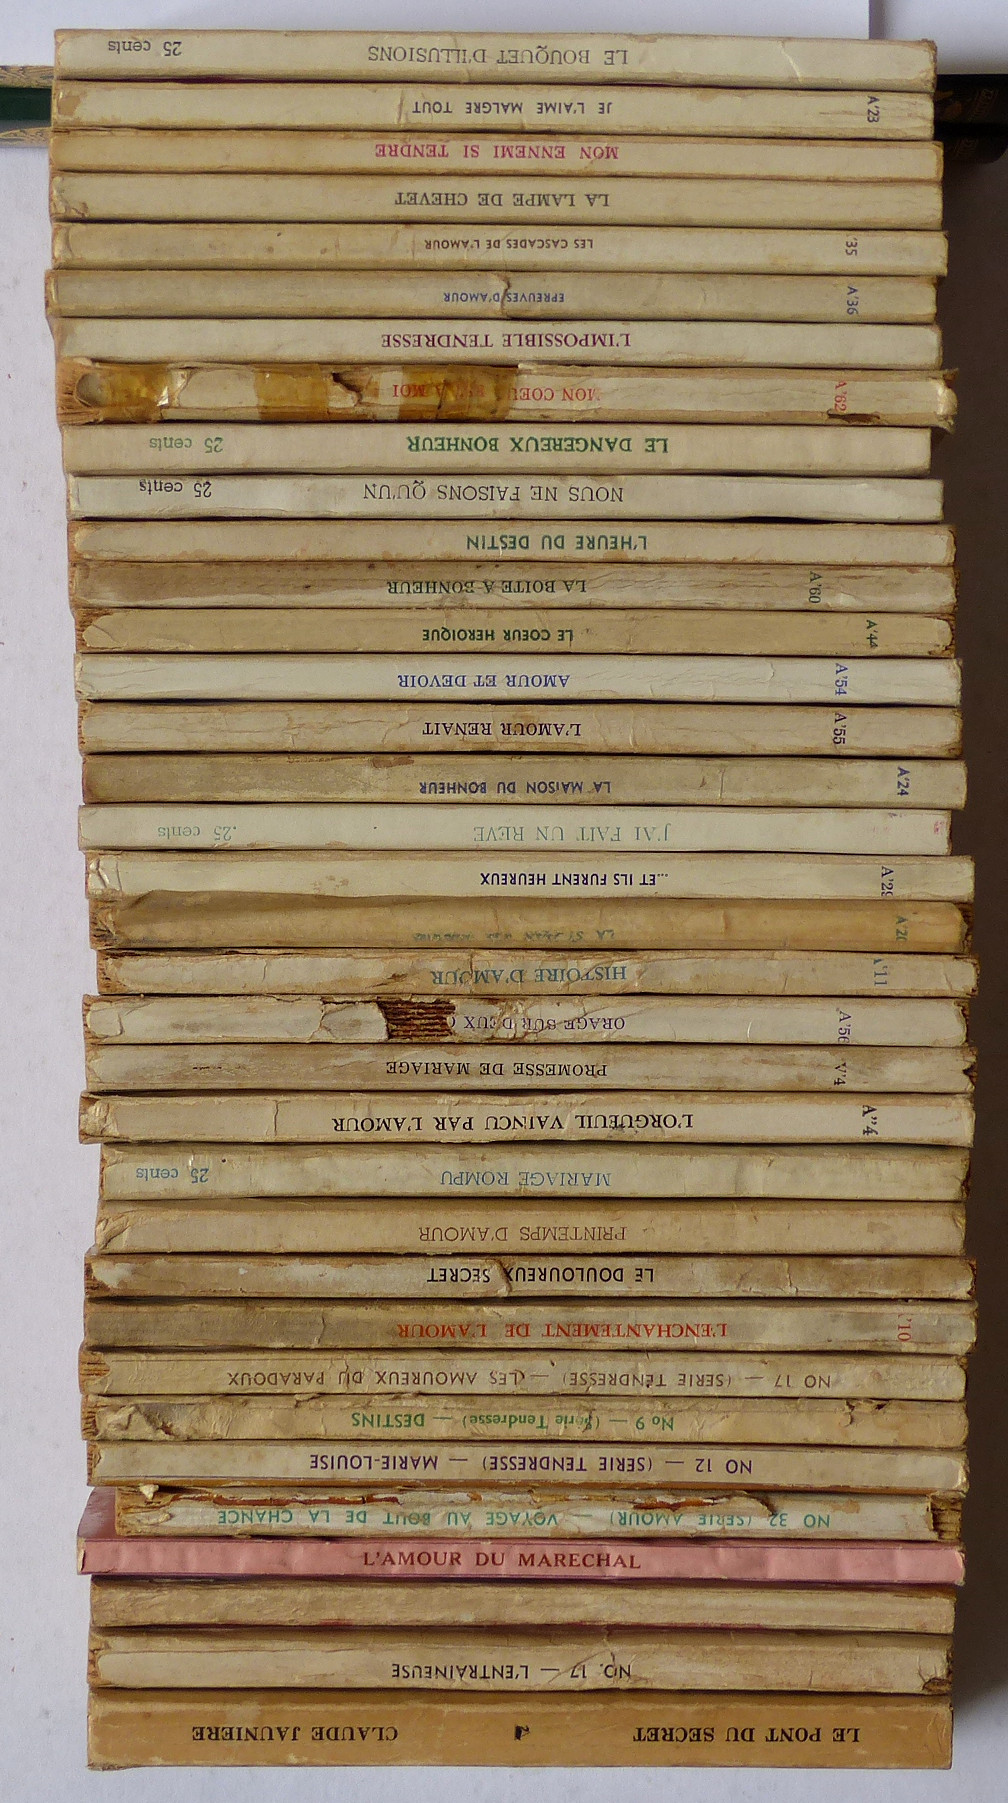 LE BOUQUET D'ILLUSIONS 25 cents
A'23 JE L'AIME MALGRE TOUT
MON ENNEMI SI TENDRE
LA LAMPE DE CHEVET
'35 LES CASCADES DE L'AMOUR
A'36 EPREUVES D'AMOUR
L'IMPOSSIBLE TENDRESSE
A'62 MON COEU A MOI
LE DANGEREUX BONHEUR 25 cents
NOUS NE FAISONS QU'UN 25 cents
L'HEURE DU DESTIN
A'60 LA BOITE A BONHEUR
A'44 LE COEUR HEROIQUE
A'54 AMOUR ET DEVOIR
A'55 L'AMOUR RENAIT
A'24 LA MAISON DU BONHEUR
J'AI FAIT UN REVE 25 cents
A'29 ...ET ILS FURENT HEUREUX
LA
'11 HISTOIRE D'AMOUR
A'56 ORAGE SUR DEUX
A'4 PROMESSE DE MARIAGE
A"4 L'ORGUEUIL VAINCU PAR L'AMOUR
MARIAGE ROMPU 25 cents
PRINTEMPS D'AMOUR
LE DOULOUREUX SECRET
'10 L'ENCHANTEMENT DE L'AMOUR
NO 17 — (SERIE TENDRESSE) — LES AMOUREUX DU PARADOUX
No 9 — (Série Tendresse) — DESTINS
NO 12 — (SERIE TENDRESSE) — MARIE-LOUISE
NO 32 (SERIE AMOUR) — VOYAGE AU BOUT DE LA CHANCE
L'AMOUR DU MARECHAL
NO. 17 — L'ENTRAINEUSE
LE PONT DU SECRET CLAUDE JAUNIERE